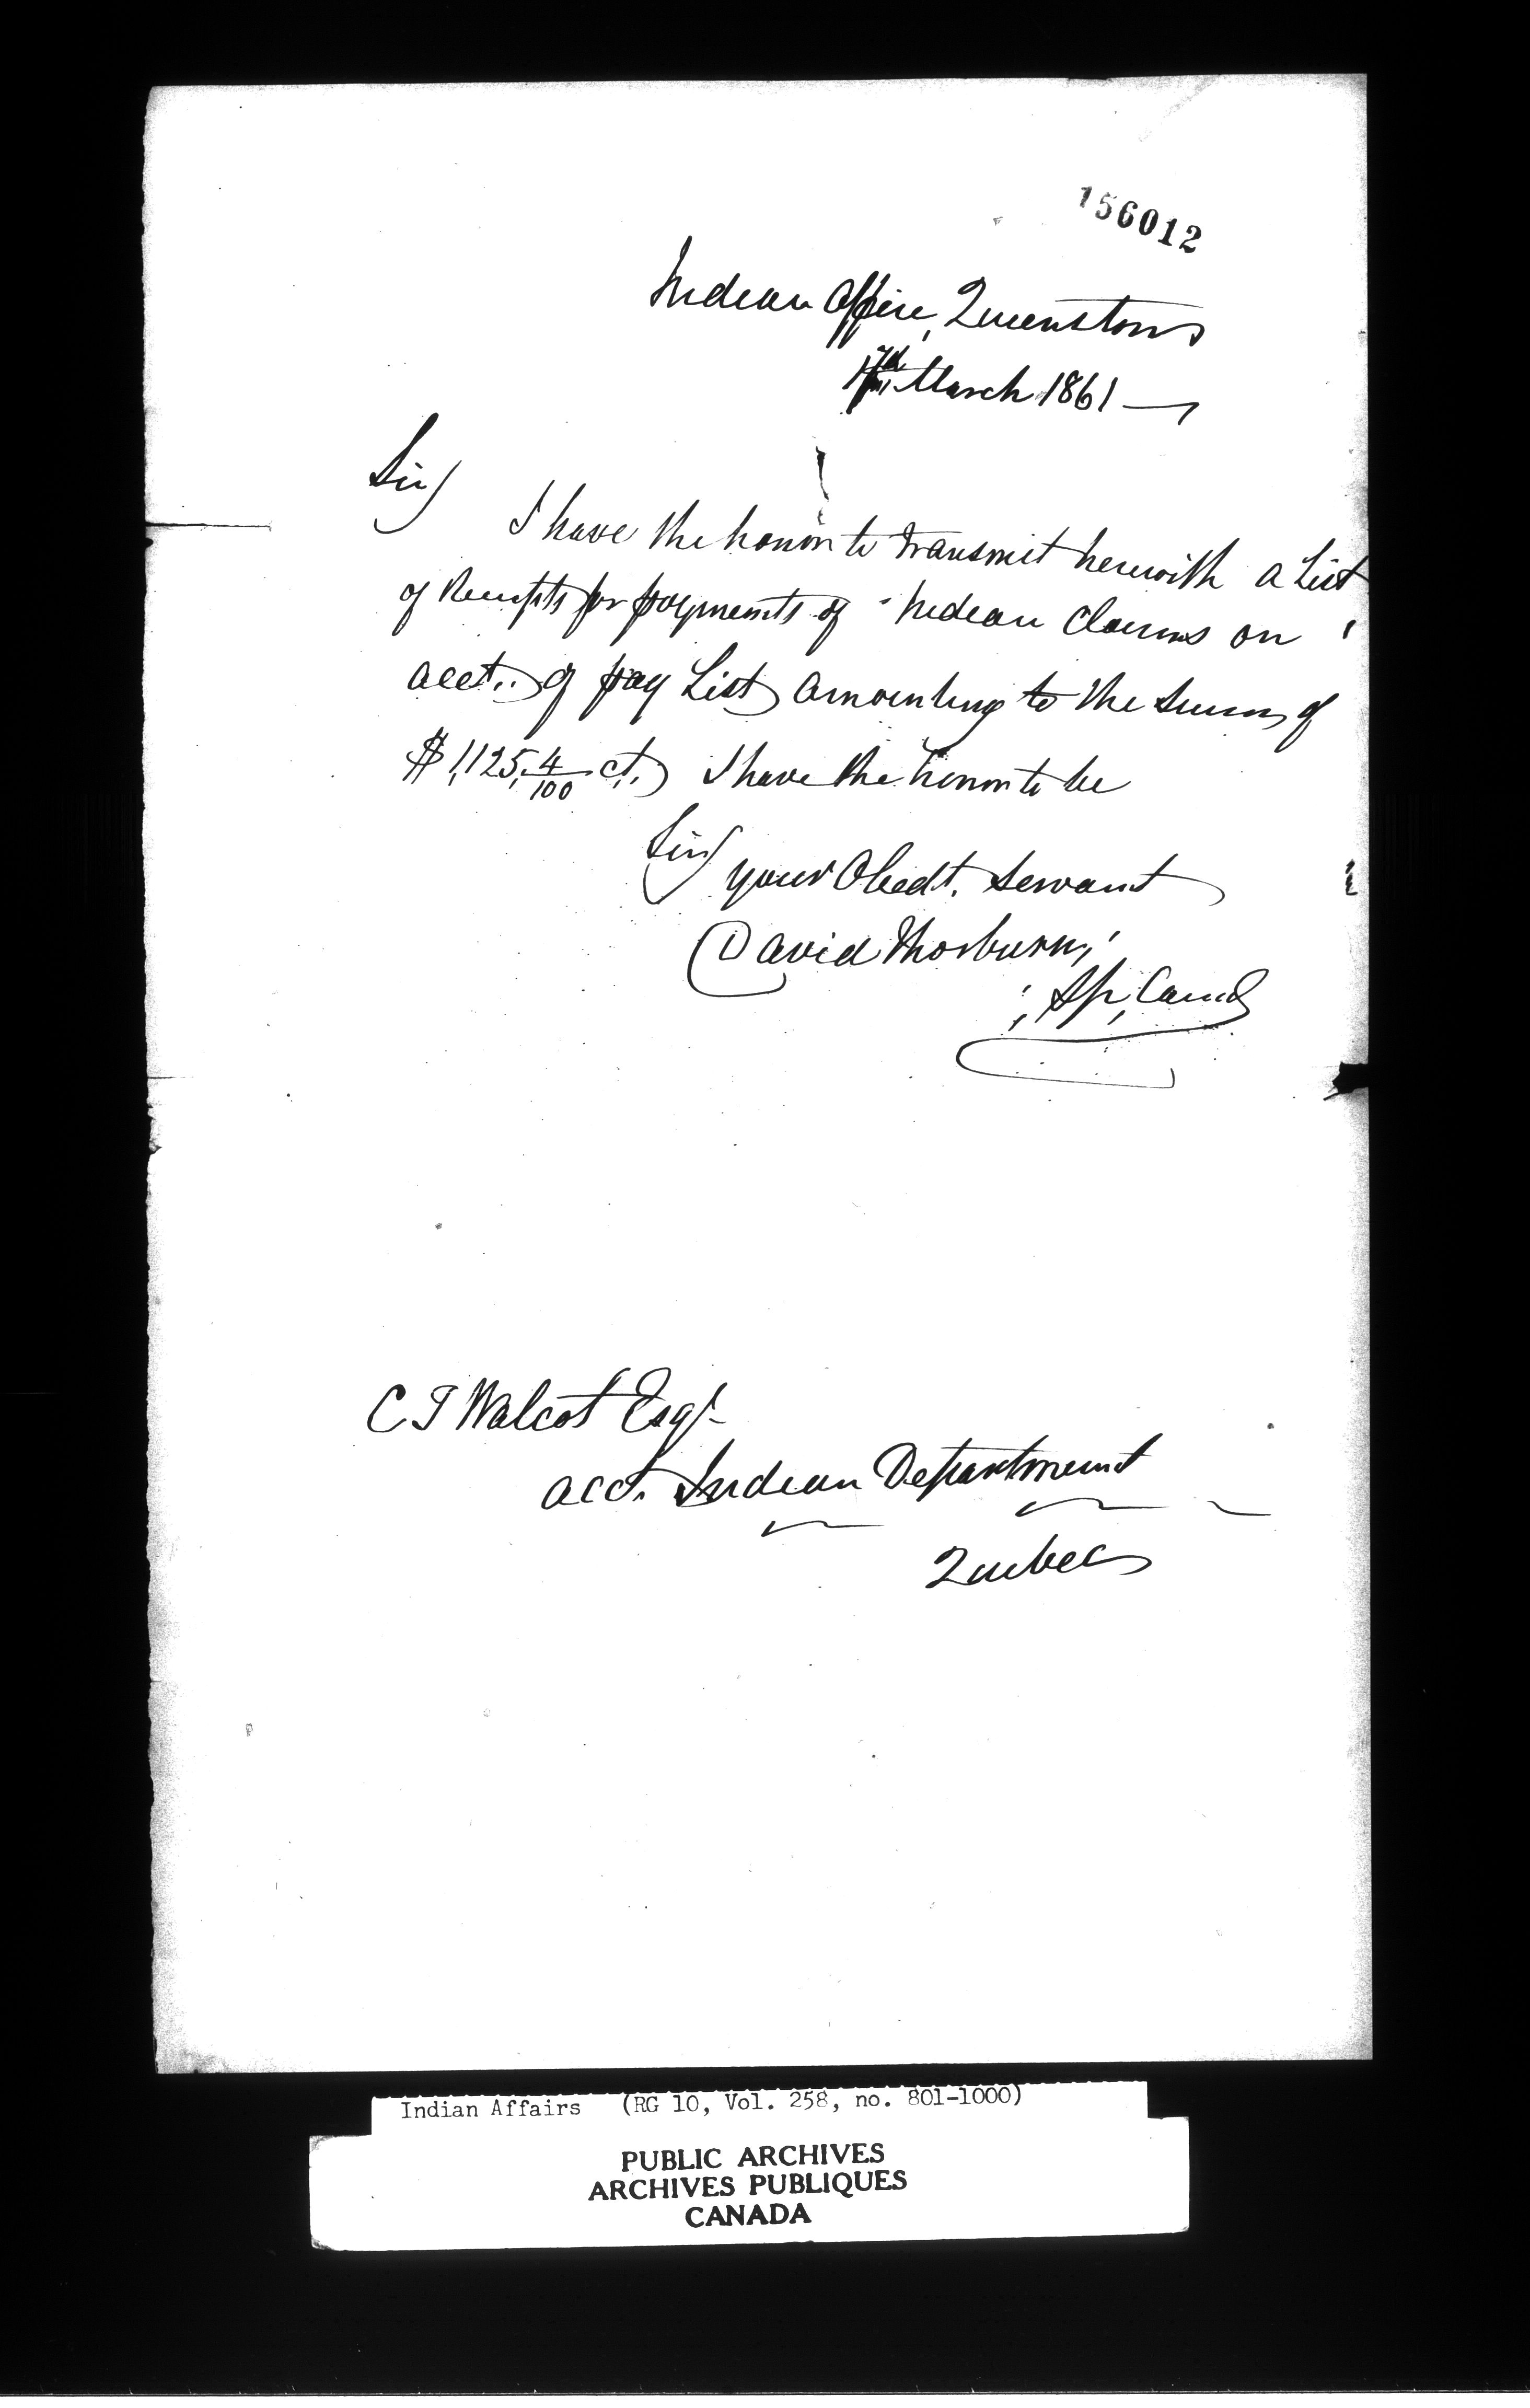 156012
Indian Office, Queenston
March 1861
Sir
I have the honor to transmit herewith a List
of Receipts for payments of Indian Claims on
acct. of pay List amounting to the sum of
$1,125, 4/100 ct. I have the honor to be
Sir
your Obedt. Servant
David Thorburn
Sp, Com
C T Walcot Esqr
acct. Indian Department
Quebec
Indian Affairs (RG 10, Vol. 258, no. 801-1000)
PUBLIC ARCHIVES
ARCHIVES PUBLIQUES
CANADA